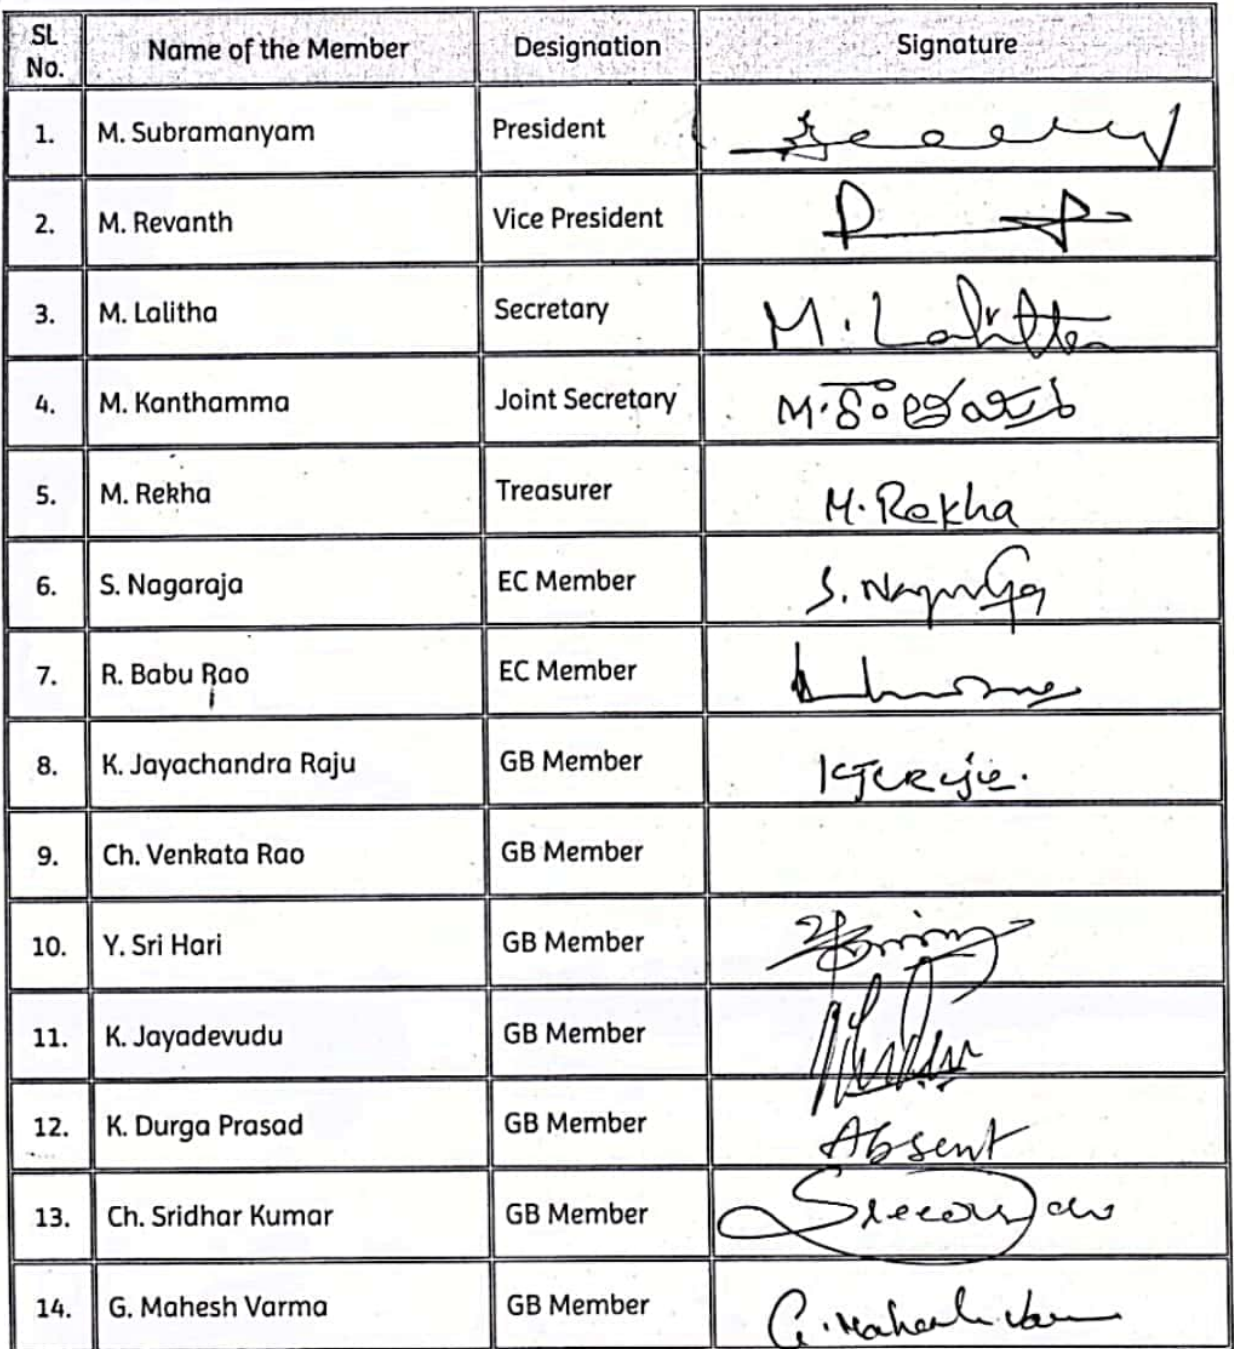 SL No. Name of the Member Designation Signature
1. M. Subramanyam President
2. M. Revanth Vice President
3. M. Lalitha Secretary M. Lalitha
4. M. Kanthamma Joint Secretary M.
5. M. Rekha Treasurer M. Rekha
6. S. Nagaraja EC Member S. Nagaraja
7. R. Babu Rao EC Member
8. K. Jayachandra Raju GB Member KJCRaju.
9. Ch. Venkata Rao GB Member
10. Y. Sri Hari GB Member
11. K. Jayadevudu GB Member
12. K. Durga Prasad GB Member Absent
13. Ch. Sridhar Kumar GB Member
14. G. Mahesh Varma GB Member G. Mahesh Varma